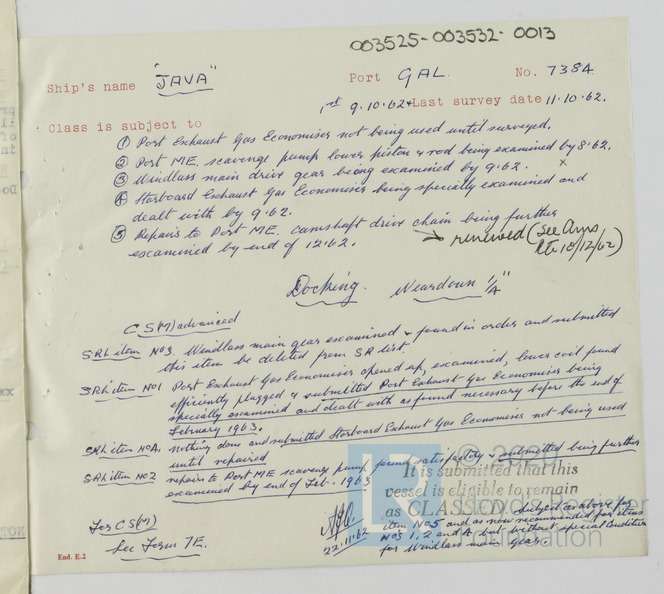 003525-003532-0013
Ship's name "JAVA" Port GAL. No. 7384
1st 9.10.62 & Last survey date 11.10.62.
Class is subject to
① Port Exhaust Gas Economiser not being used until surveyed.
② Port M.E. scavenge pump lower piston & rod being examined by 8.62.
③ Windlass main drive gear being examined by 9.62. x
④ Starboard Exhaust Gas Economiser being specially examined and
dealt with by 9.62.
⑤ Repairs to Port M.E. camshaft drive chain being further
examined by end of 12.62. → renewed (See Ams
ltr 10/12/62)
Docking. Weardown
CS(M) advanced
SRL item No 3. Windlass main gear examined & found in order and submitted
this item be deleted from SR list.
SRL item No 1 Port Exhaust Gas Economiser opened up, examined, lower coil found
efficiently plugged & submitted Port Exhaust Gas Economiser being
specially examined and dealt with as found necessary before the end of
February 1963.
SRL item No 4. nothing done and submitted Starboard Exhaust Gas Economiser not being used
until repaired
SRL item No 2 repairs to Port M.E scavenge pump found satisfactory & submitted being further
examined by end of Feb. 1963
It is submitted that this
vessel is eligible to remain
as CLASSED. Subject as above for
item No 5 and as now recommended for items
Nos 1, 2 and 4 but without special condition
for Windlass main gear.
For CS(M)
See Form 7E.
22.11.62
End. E.2
Lloyd's Register
Foundation